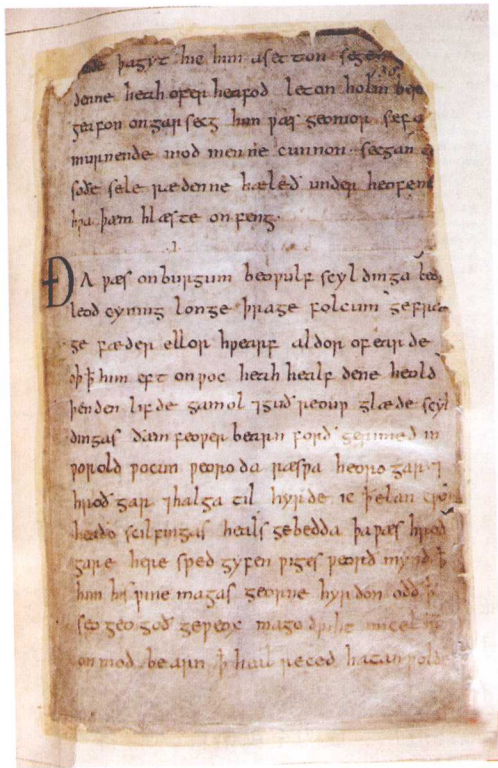 þagyt hie him asetton segen
denne heah ofer heafod leton holm
geafon ongarsecg him ƿæs geomor sefa
murnende mod men ne cunnon secgan
soðe sele rædenne hæleð under heofenu
hƿa þæm hlæste onfeng.
.I.
ÐA ƿæs onburgum beoƿulf scyldinga
leod cyning longe þrage folcum gefræ
ge fæder ellor hƿearf aldor ofearde
oþ þ him eft onƿoc heah healf dene heold
þenden lifde gamol ⁊ guð reouƿ glæde scyl
dingas ðæm feoƿer bearn forð gerimed in
ƿorold ƿocun ƿeoroda ræsƿa heoro gar ⁊
hroð gar ⁊ halga til hyrde ic þ elan cƿen
heaðo scilfingas heals gebedda þa ƿæs hroð
gare here sped gyfen ƿiges ƿeorð mynd þ
him his ƿine magas georne hyrdon oðð þ
seo geogoð geƿeox mago driht micel
on mod bearn þ heal reced hatan ƿolde